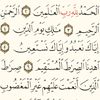 الْحَمْدُ لِلَّهِ رَبِّ الْعَالَمِينَ ۝ الرَّحْمَٰنِ
الرَّحِيمِ ۝ مَالِكِ يَوْمِ الدِّينِ ۝
إِيَّاكَ نَعْبُدُ وَإِيَّاكَ نَسْتَعِينُ ۝
اهْدِنَا الصِّرَاطَ الْمُسْتَقِيمَ ۝ صِرَاطَ
الَّذِينَ أَنْعَمْتَ عَلَيْهِمْ غَيْرِ الْمَغْضُوبِ